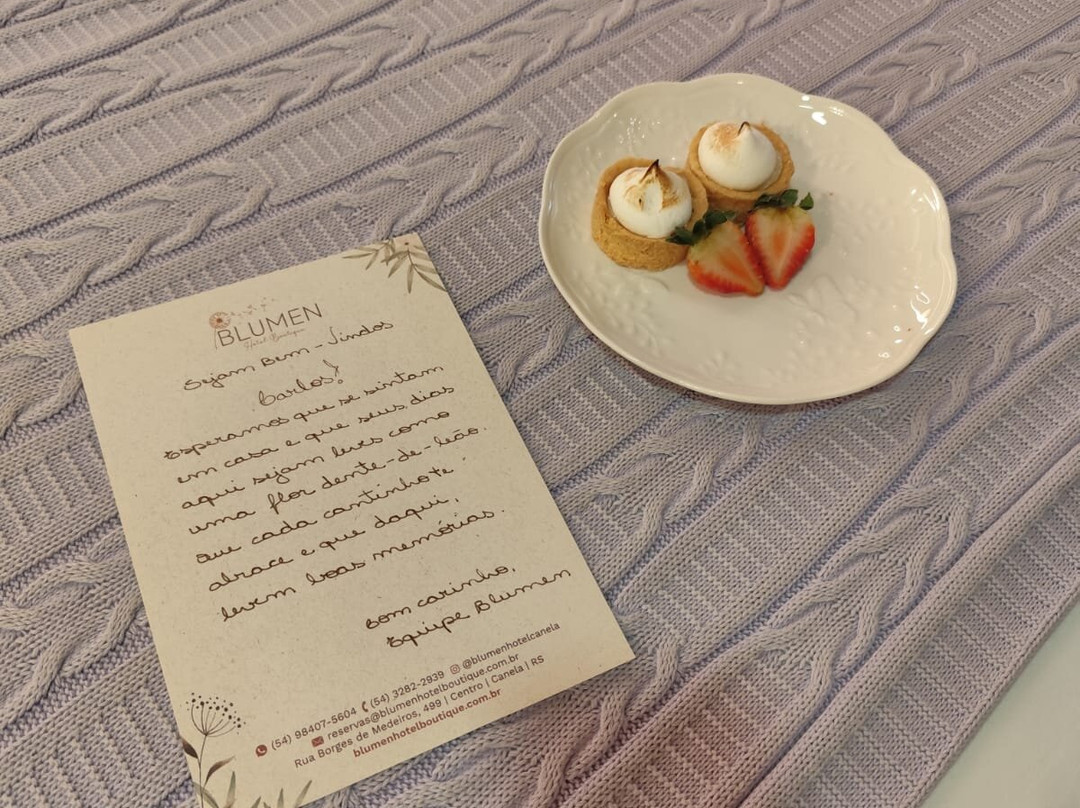 BLUMEN
Hotel Boutique
Sejam Bem-Vindos
Carlos!
Esperamos que se sintam
em casa e que seus dias
aqui sejam leves como
uma flor dente-de-leão.
Que cada cantinho te
abrace e que daqui,
levem boas memórias.
Com carinho,
Equipe Blumen
(54) 98407-5604 (54) 3282-2939 @blumenhotelcanela
reservas@blumenhotelboutique.com.br
Rua Borges de Medeiros, 499 | Centro | Canela | RS
blumenhotelboutique.com.br